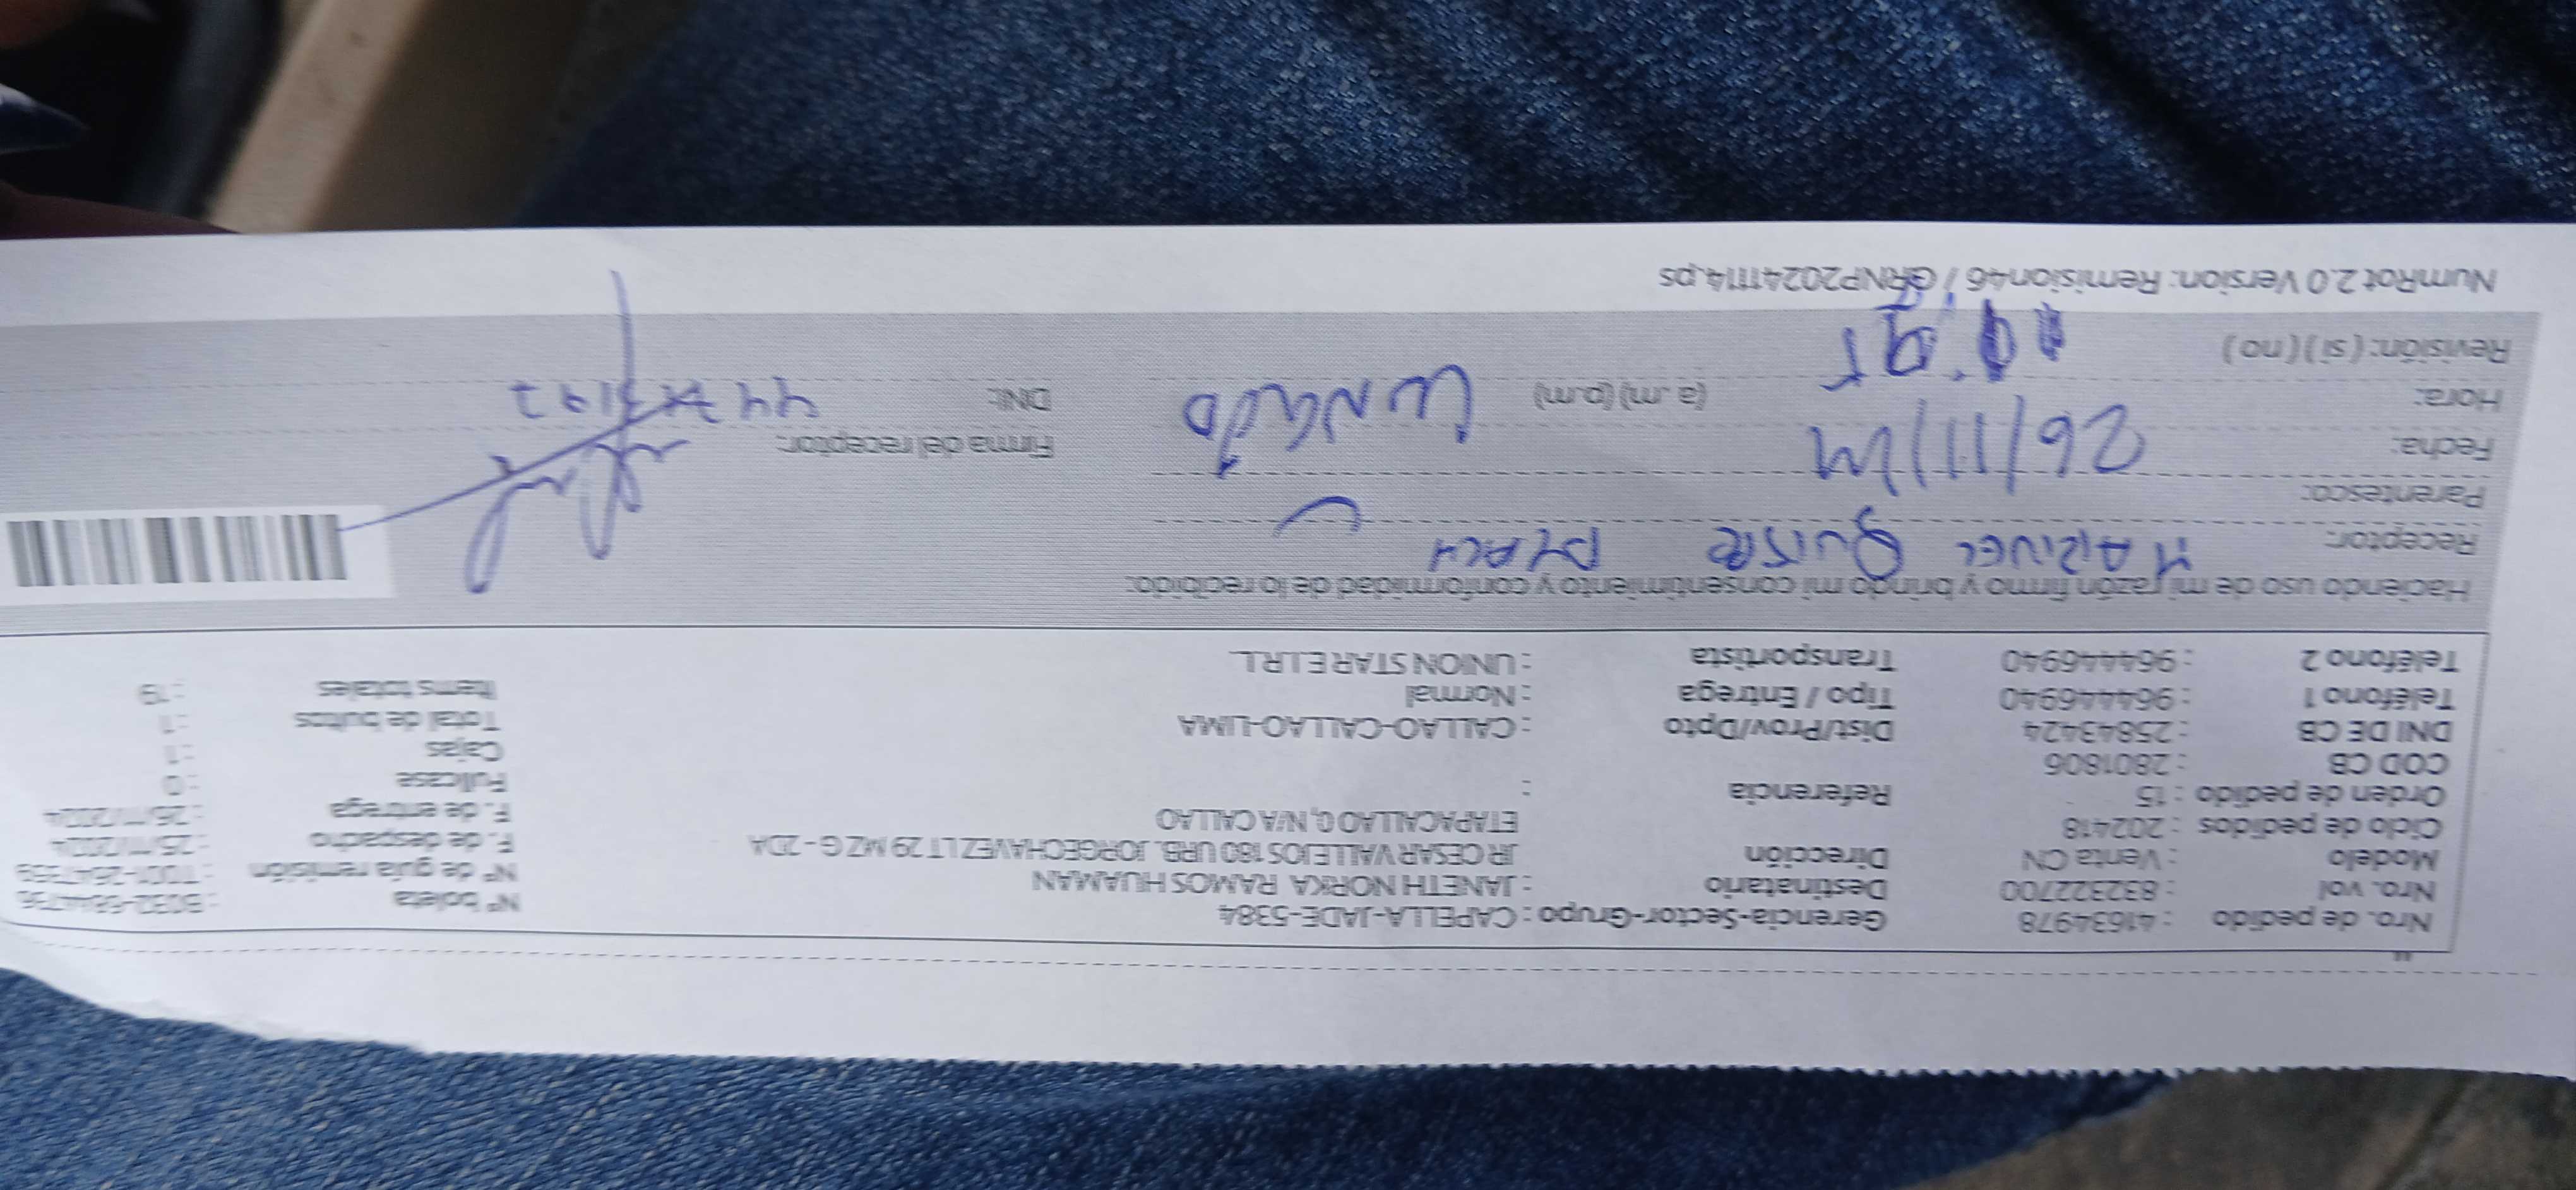 Nro. de pedido : 41634978 Gerencia-Sector-Grupo : CAPELLA-JADE-5384 Nº boleta
Nro. vol : 832322700 Destinatario : JANETH NORKA RAMOS HUAMAN Nº de guía remisión
Modelo : Venta CN Dirección JR CESAR VALLEJOS 180 URB. JORGECHAVEZ LT 29 MZ G - 2DA F. de despacho : 25/11/2024
Ciclo de pedidos : 202418 ETAPACALLAO 0, N/A CALLAO F. de entrega : 26/11/2024
Orden de pedido : 15 Referencia : Fullcase : 0
COD CB : 2801806 Cajas : 1
DNI DE CB : 25843424 Dist/Prov/Dpto : CALLAO-CALLAO-LIMA Total de bultos : 1
Teléfono 1 : 964446940 Tipo / Entrega : Normal Items totales : 19
Teléfono 2 : 964446940 Transportista : UNION STAR E.I.R.L.
Haciendo uso de mi razón firmo y brindo mi consentimiento y conformidad de lo recibido:
Receptor: MARIVEL QUISPE
Parentesco:
Fecha: 26/11/ Firma del receptor:
Hora: (a .m) (p.m) DNI:
Revisión: ( si ) ( no )
NumRot 2.0 Version: Remision46 / GRNP20241114.ps